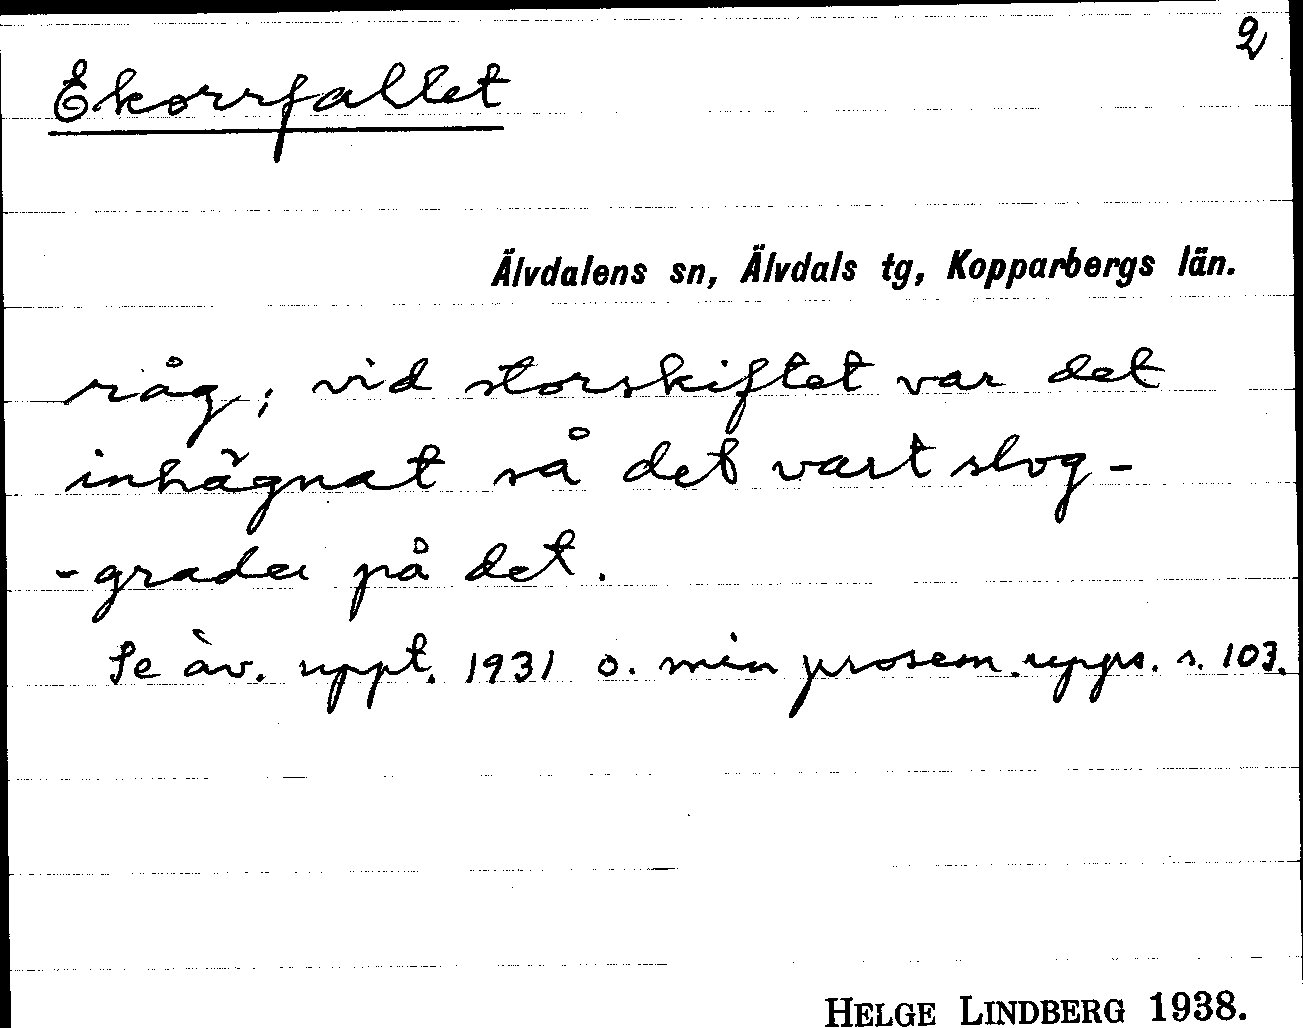 2
Ekorrfallet
Älvdalens sn, Älvdals tg, Kopparbergs län.
råg; vid storskiftet var det
inhägnat så det vart slog-
-grader på det.
Se äv. uppt. 1931 o. min prosem. upps. s. 103.
HELGE LINDBERG 1938.